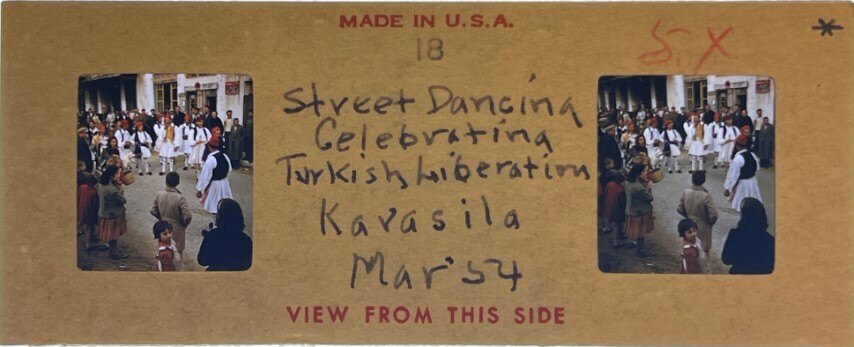 MADE IN U.S.A.
18
5. X
*
Street Dancing
Celebrating
Turkish Liberation
Kavasila
Mar '54
VIEW FROM THIS SIDE